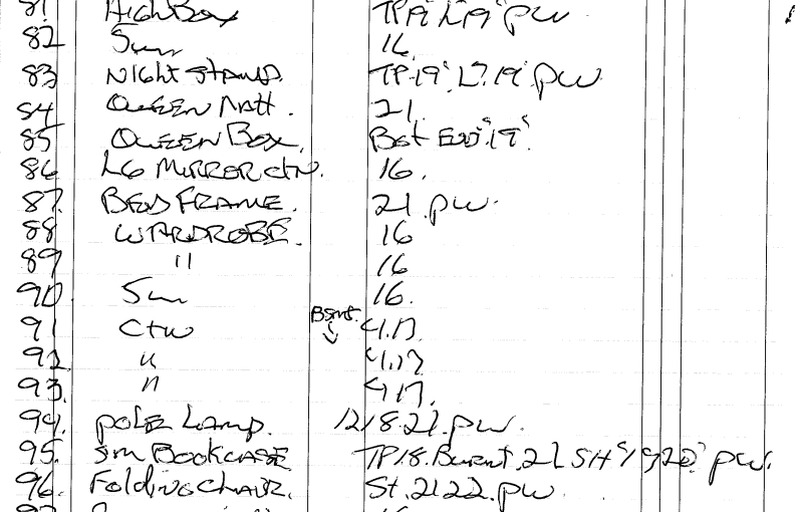 81 High Box TP.19' L'19' pw
82 Sm 16
83 Night Stand. TP.19'. L7.19'. pw
84 Queen Matt. 21.
85 Queen Box. Bot End '19'
86 LG Mirror ctn. 16.
87. Bed Frame. 21. pw.
88 Wardrobe. 16
89 " 16
90 Sm 16.
91 Ctn Bsmt. ↓ 4.17.
92 " 4.17
93. " 4.17.
94. pole Lamp. 12 18.21. pw.
95. Sm Bookcase TP.18. Burnt. 21 SH pw.
96. Folding Chair. St. 21 22. pw